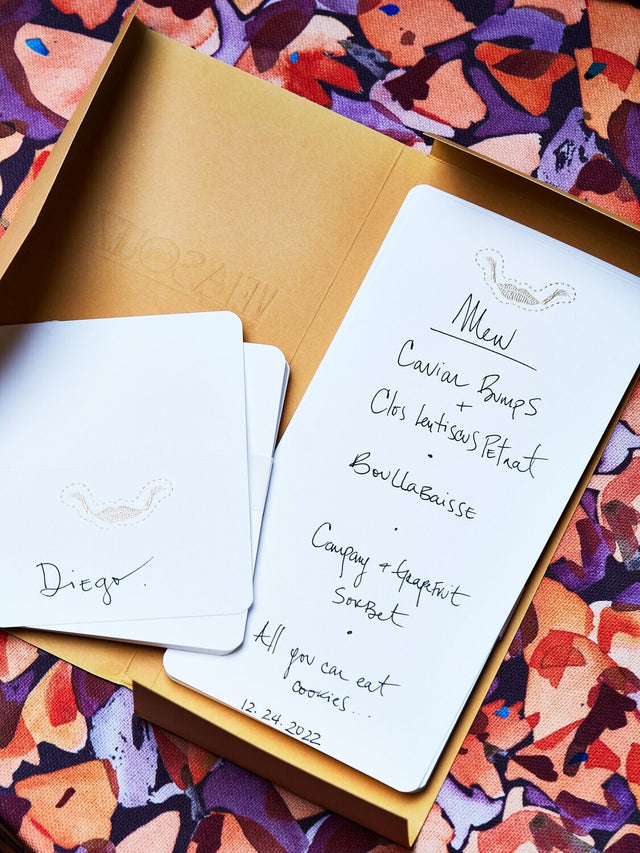 Menu
Caviar Bumps
+
Clos Lentiscus Petnat
Boullabaisse
Campary + Grapefruit
Sorbet
All you can eat
cookies...
12.24.2022
Diego.